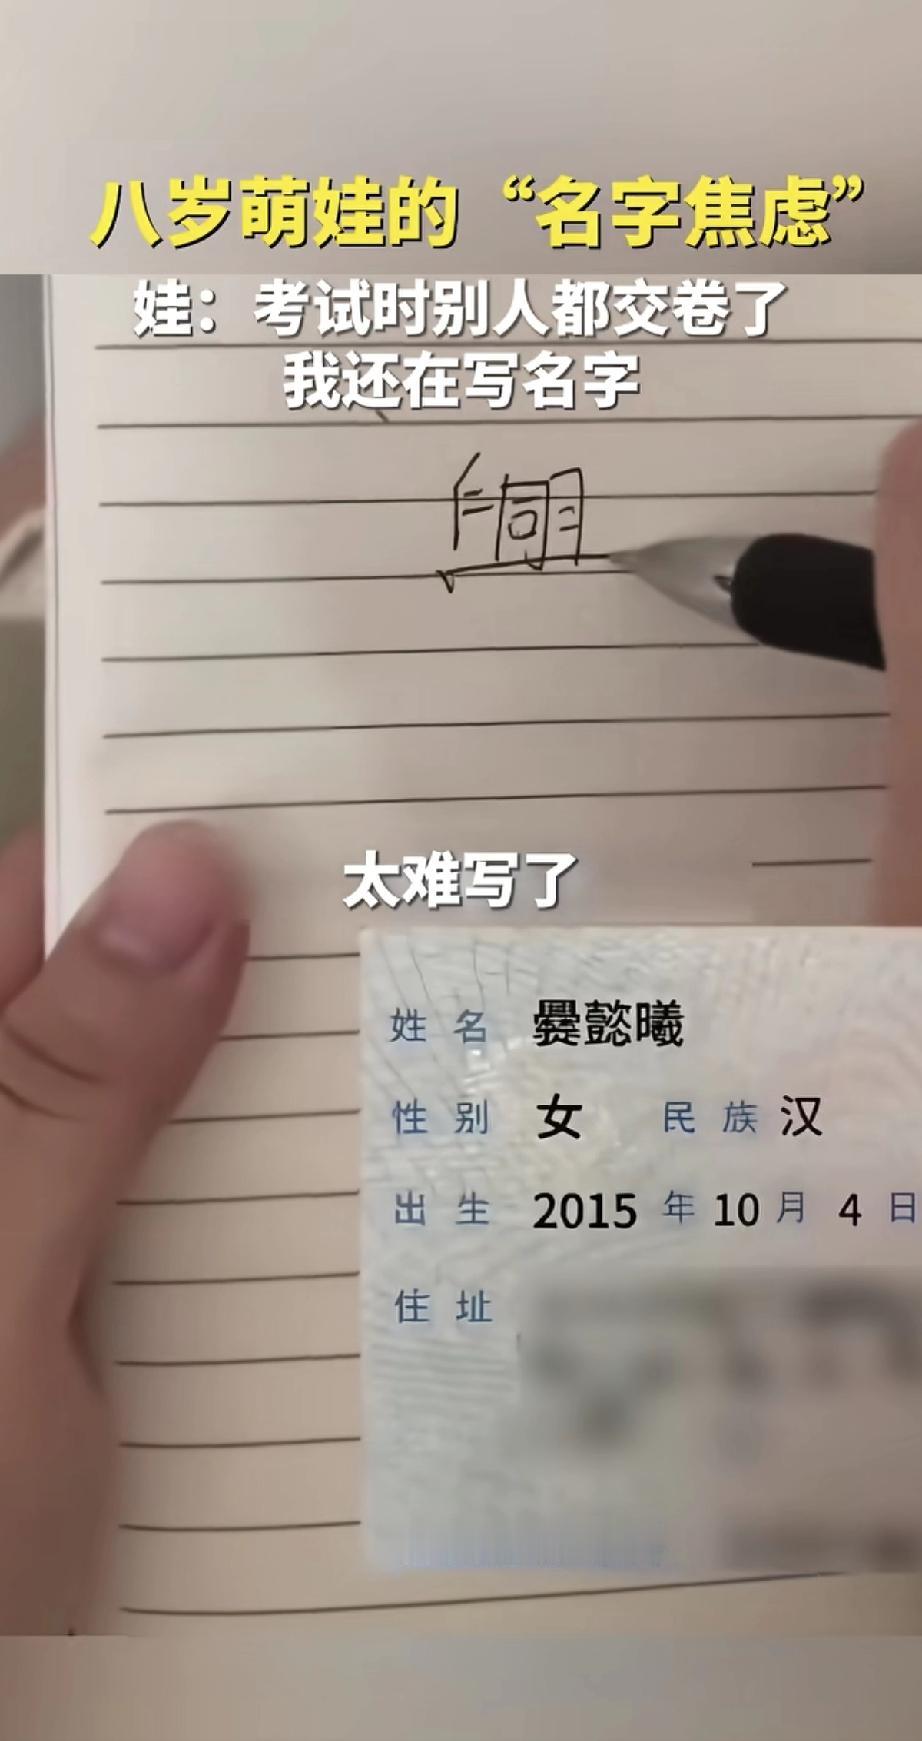 八岁萌娃的“名字焦虑”
娃：考试时别人都交卷了
我还在写名字
太难写了
姓名 爨懿曦
性别 女 民族 汉
出生 2015 年 10 月 4 日
住址